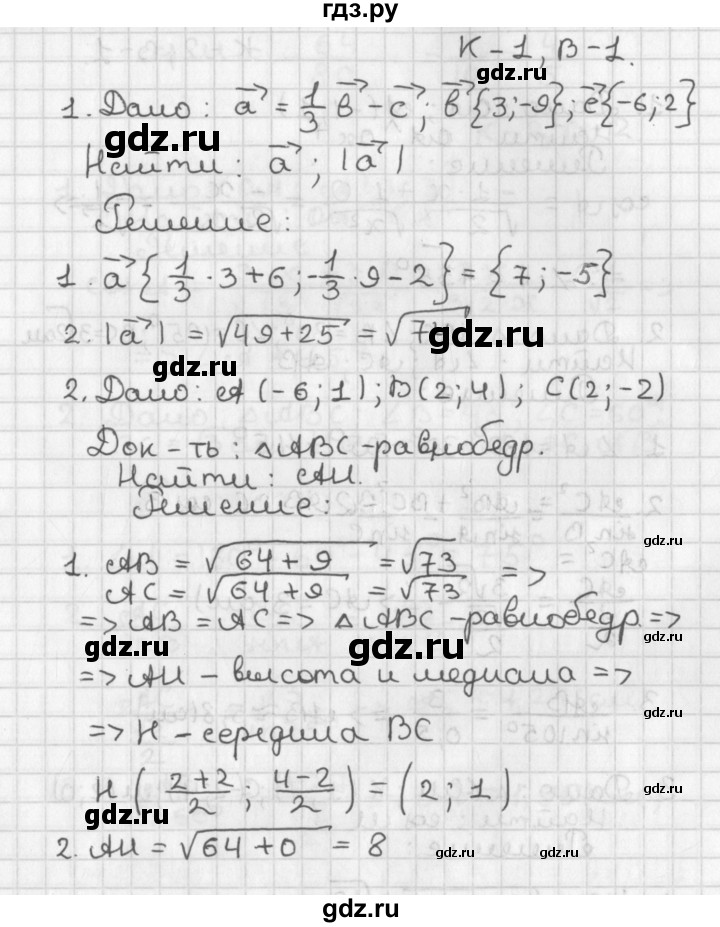 гдз.ру
К-1, В-1.
1. Дано: a⃗ = 1/3 b⃗ - c⃗; b⃗{3;-9}; c⃗{-6;2}
gdz.ru
gdz.ru
Найти: a⃗; |a⃗|
Решение:
1. a⃗ {1/3 · 3+6; -1/3 · 9-2} = {7; -5}
2. |a⃗| = √49+25 = √74
gdz.ru
2. Дано: A(-6;1); B(2;4); C(2;-2)
Док-ть: △ABC-равнобедр.
Найти: AH.
Решение:
gdz.ru
1. AB = √64+9 = √73
AC = √64+9 = √73 =>
=> AB = AC => △ABC-равнобедр. =>
gdz.ru
gdz.ru
=> AH - высота и медиана =>
gdz.ru
=> H - середина BC
H (2+2/2; 4-2/2) = (2; 1)
gdz.ru
gdz.ru
2. AH = √64+0 = 8
gdz.ru
gdz.ru
gdz.ru